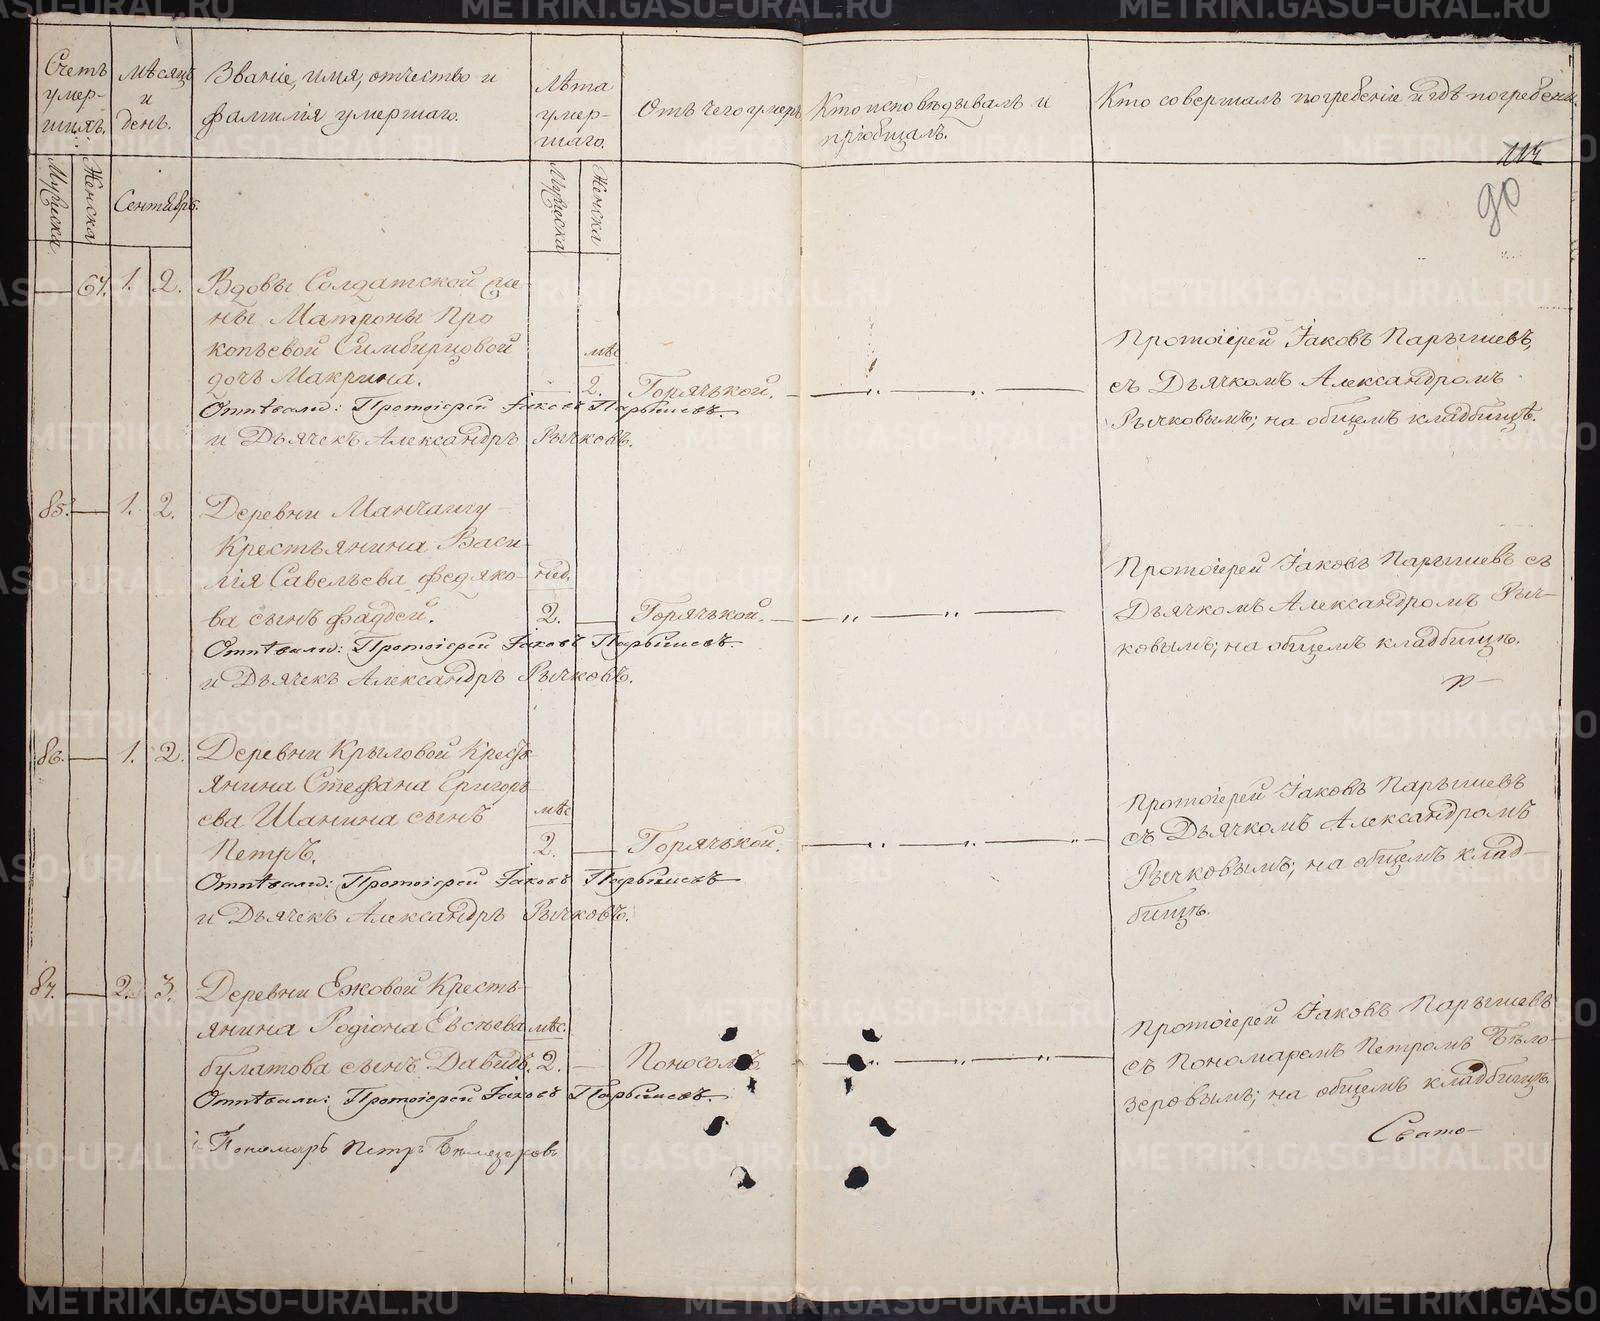 Счетъ умер-шихъ.
Мѣсяцъ и день.
Званіе, имя, отчество и фамилія умершаго.
Лѣта умер-шаго.
Отъ чего умеръ
Кто исповѣдывалъ и пріобщалъ.
Кто совершалъ погребеніе и гдѣ погребены.
114
90
Мужеска
Женска
Сентябрь.
Мужеска
Женска
— 64. 1. 2. Вдовы Солдатской же-
ны Матроны Про
копьевой Симбирцовой
дочь Макрина.
мѣс
— 2. Горячькой.
Отпѣвали: Протоіерей Іаковъ Парышевъ.
и Дьячекъ Александръ Рычковъ.
Протоіерей Іаковъ Парышевъ,
съ Дьячкомъ Александромъ
Рычковымъ; на общемъ кладбищѣ.
85. — 1. 2. Деревни Манчашу
Крестьянина Васи-
лія Савельева Федяко-
ва сынъ Фаддей.
нед.
2. — Горячькой.
Отпѣвали: Протоіерей Іаковъ Парышевъ.
и Дьячекъ Александръ Рычковъ.
Протоіерей Іаковъ Парышевъ съ
Дьячкомъ Александромъ Рыч-
ковымъ; на общемъ кладбищѣ.
р—
86. — 1. 2. Деревни Крыловой Кресть
янина Стефана Григорь
ева Шанина сынъ
Петръ.
мѣс
2. — Горячькой.
Отпѣвали: Протоіерей Іаковъ Парышевъ
и Дьячекъ Александръ Рычковъ.
Протоіерей Іаковъ Парышевъ
съ Дьячкомъ Александромъ
Рычковымъ; на общемъ клад-
бищѣ.
87. — 2. 3. Деревни Ежовой Кресть-
янина Родіона Евсѣева
булатова сынъ Давидъ.
мѣс.
2. — Поносомъ
Отпѣвали: Протоіерей Іаковъ Парышевъ.
и Пономарь Петръ Бѣлозеровъ
Протоіерей Іаковъ Парышевъ
съ Пономаремъ Петромъ Бѣло-
зеровымъ; на общемъ кладбищѣ.
Свято-
METRIKI.GASO-URAL.RU